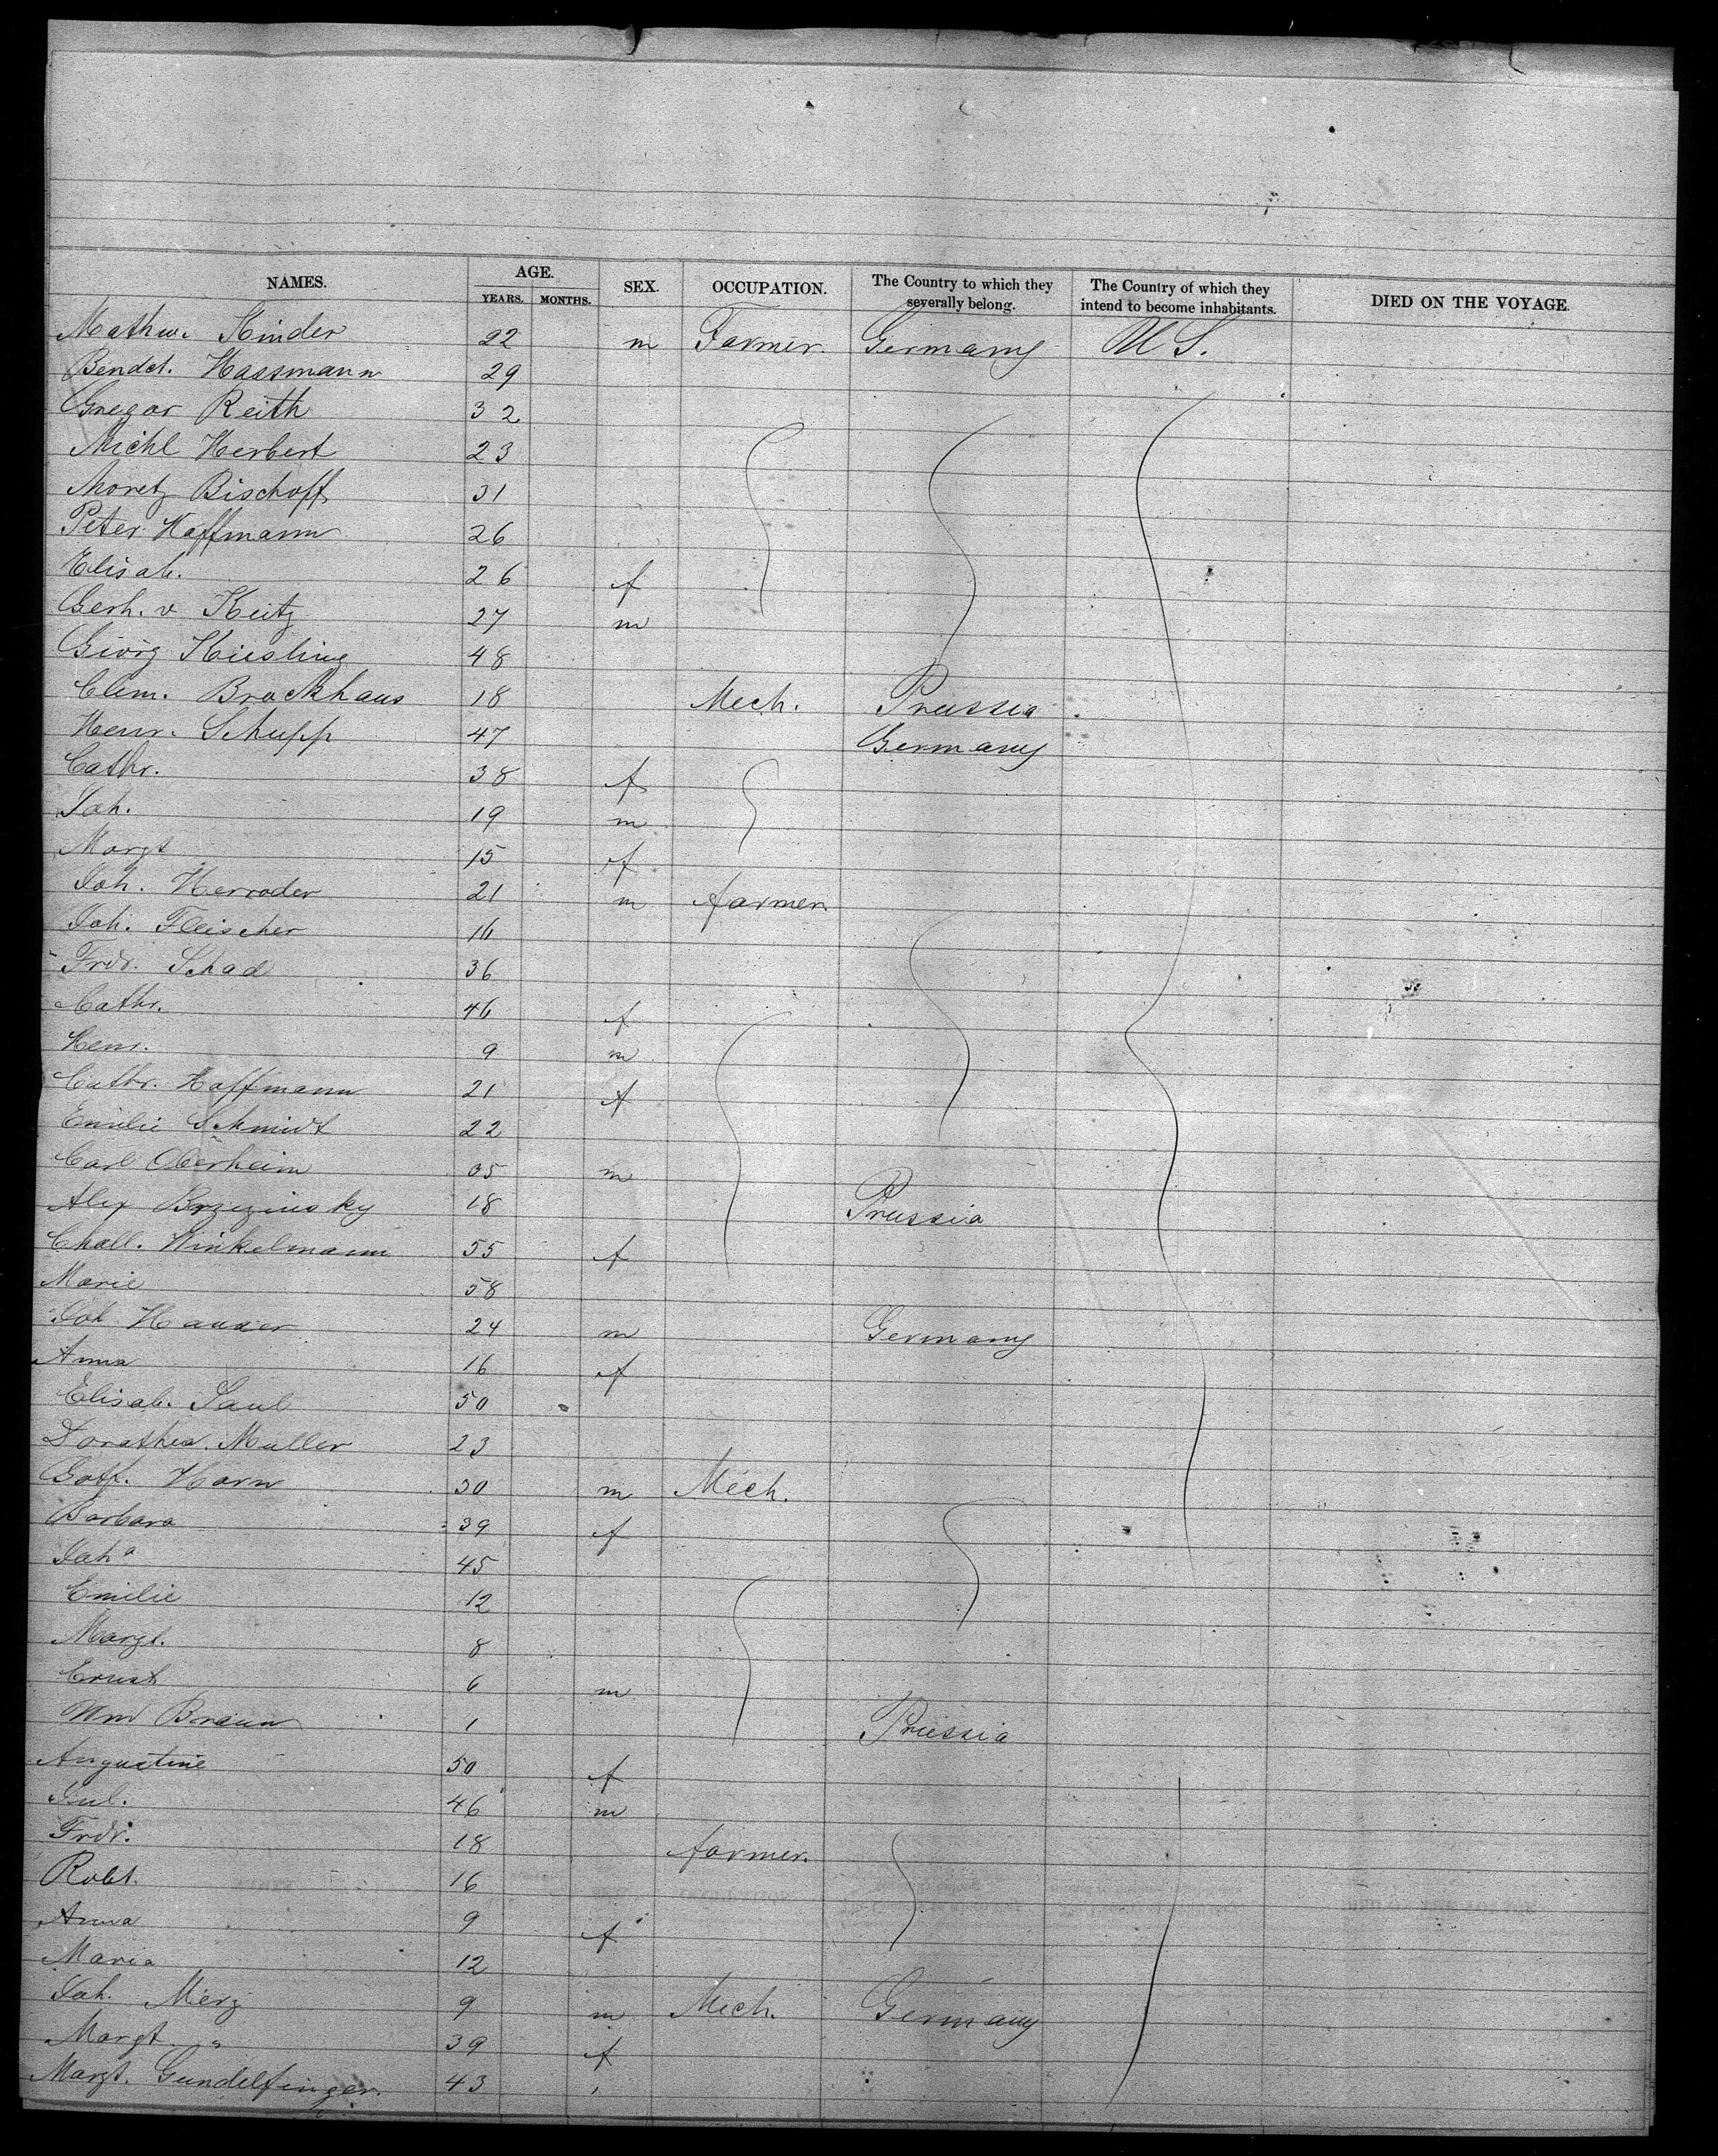 NAMES. AGE. SEX. OCCUPATION. The Country to which they severally belong. The Country of which they intend to become inhabitants. DIED ON THE VOYAGE.
YEARS. MONTHS.
Mathw. Kinder 22 m Farmer. Germany U S.
Bendct. Hassmann 29
Gregor Reith 32
Michl Herbert 23
Moretz Bischoff 31
Peter Hoffmann 26
Elisab. 26 f
Gerh. v Keitz 27 m
Georg Kiesling 48
Clem. Brockhaus 18 Mech. Prussia
Henr. Schupp 47 Germany
Cathr. 38 f
Joh. 19 m
Margt 15 f
Joh. Herroder 21 m farmer.
Joh. Fleischer 16
Frdr. Schad 36
Cathr. 46 f
Henr. 9 m
Cathr. Hoffmann 21 f
Emilie Schmidt 22
Carl Oberheim 35 m
Alex Brzezinsky 18 Prussia
Chall. Winkelmann 55 f
Marie 58
Joh Hauser 24 m Germany
Anna 16 f
Elisab. Saul 50
Dorathea Muller 23
Gotf. Horn 30 m Mech.
Barbara 39 f
Joha 45
Emilie 12
Margt. 8
Ernst 6 m
Wm Braun 1 Prussia
Augustine 50 f
Jul. 46 m
Frdr. 18 farmer.
Robt. 16
Anna 9 f
Maria 12
Joh. Merz 9 m Mech. Germany
Margt " 39 f
Margt. Gundelfinger. 43